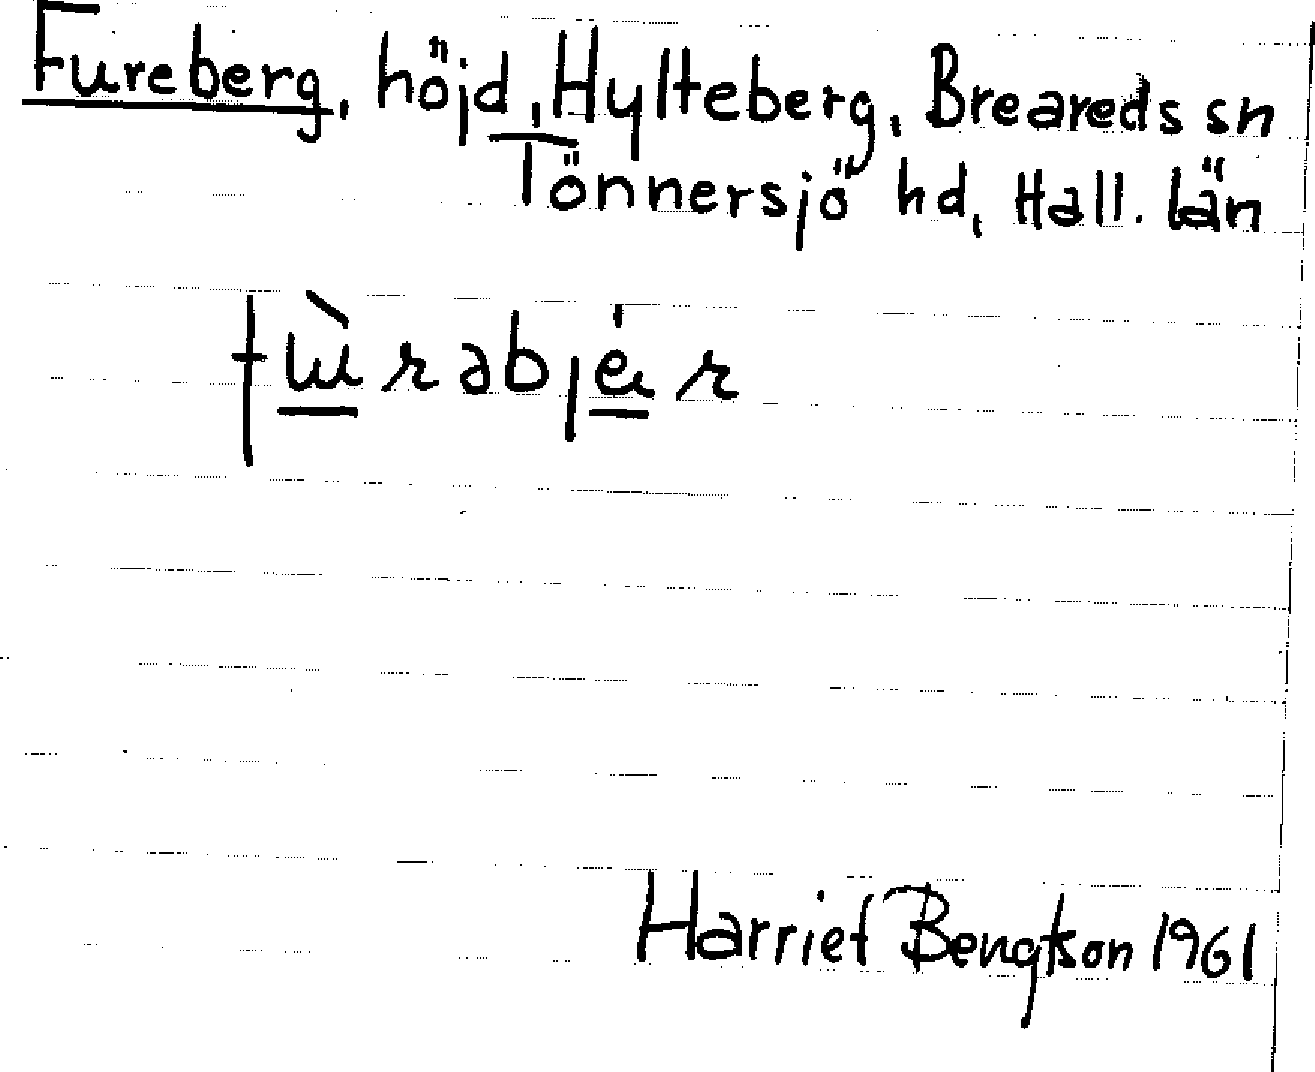 Fureberg, höjd, Hylteberg, Breareds sn
Tönnersjö hd, Hall. län
fɯ̀rabjér
Harriet Bengtson 1961